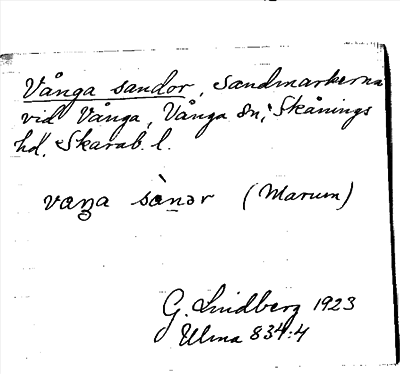 Vånga sandor, Sandmarkerna
vid Vånga, Vånga sn, Skånings
hd, Skarab. l.
vaŋa sànər (Marum)
G. Lindberg 1923
Ulma 834:4